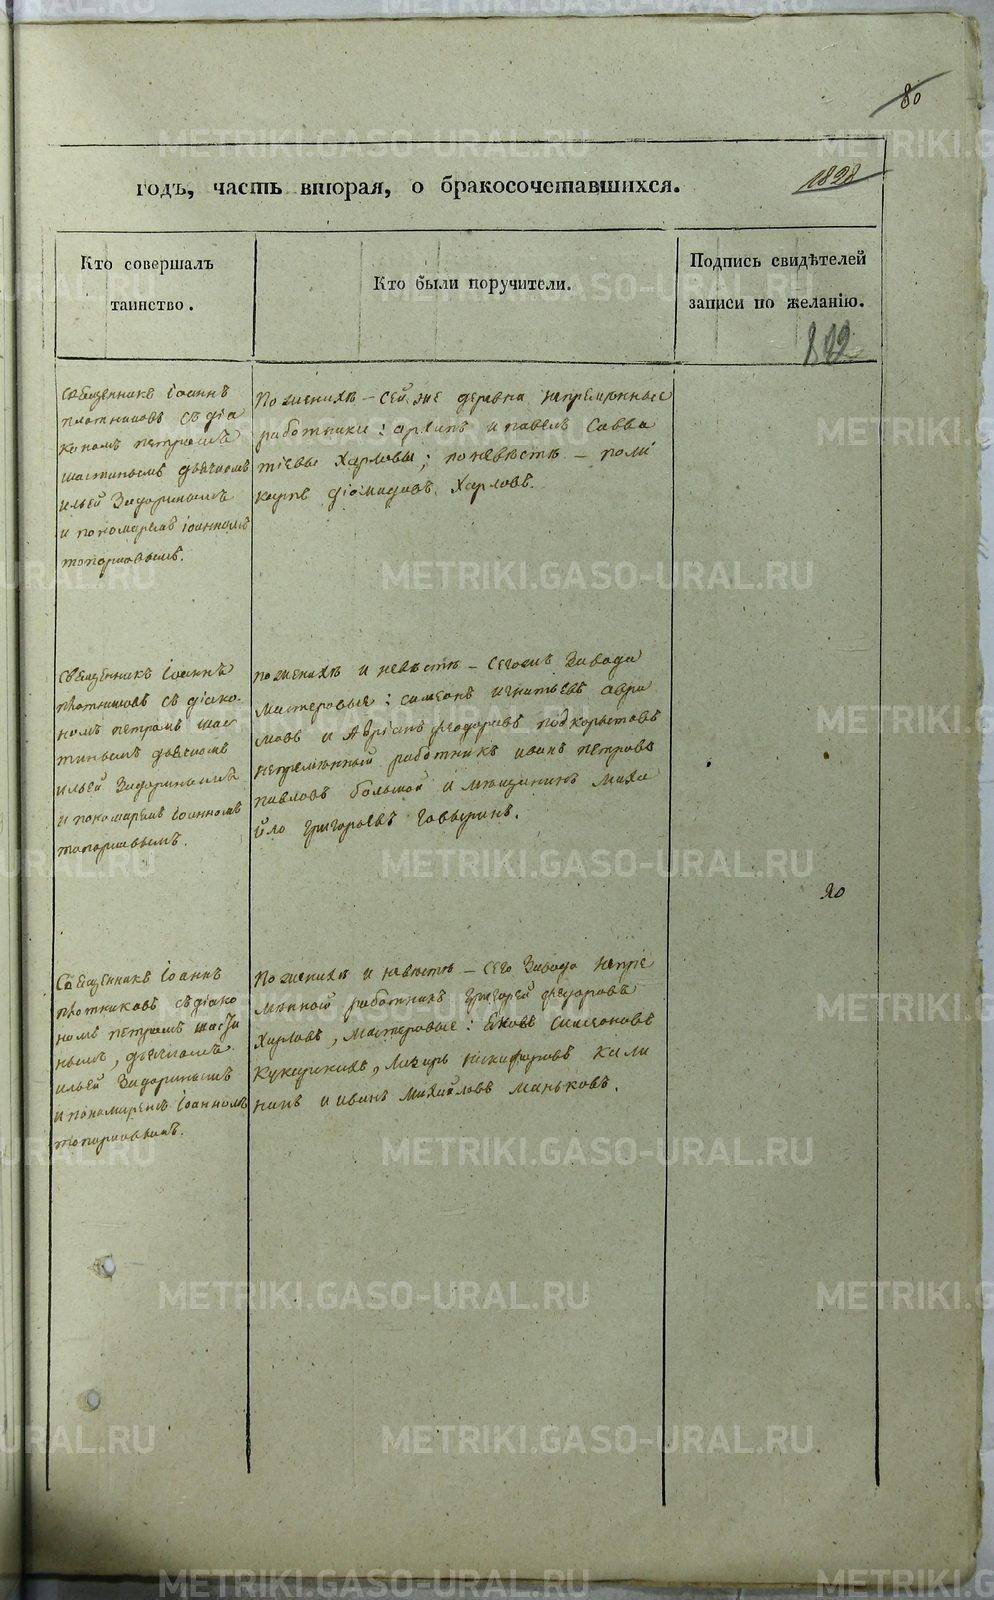 80
годъ, часть вторая, о бракосочетавшихся.
1828
Кто совершалъ
таинство.
Кто были поручители.
Подпись свидѣтелей
записи по желанію.
822
Священникъ Іоаннъ
плотниковъ съ діа
кономъ петромъ
шастинымъ дьячкомъ
ильей Задоринымъ
и пономаремъ іоанномъ
топорковымъ.
По женихѣ – сей же деревни непремѣнные
работники: архипъ и павелъ Савва
тіевы Харловы; по невѣстѣ – поли
карпъ діомидовъ Харловъ.
Священникъ Іоаннъ
плотниковъ съ діако
номъ петромъ шас
тинымъ дьячкомъ
ильей Задоринымъ
и пономаремъ Іоанномъ
топорковымъ.
по женихѣ и невѣстѣ – сегожъ Завода
мастеровые: симеонъ игнатьевъ авра
мовъ и Адріанъ феодоровъ подкорытовъ
непремѣнный работникъ иванъ петровъ
павловъ большой и мѣщанинъ миха
йло григорьевъ
20
Священникъ Іоаннъ
плотниковъ съ діако
номъ петромъ шасти
нымъ, дьячкомъ
ильей Задоринымъ
и пономаремъ Іоанномъ
топорковымъ.
По женихѣ и невѣстѣ – сего Завода непре
мѣнной работникъ григорей феодоровъ
Харловъ, мастеровые: Яковъ Симеоновъ
Кукарскихъ, Лазарь никифоровъ Кали
нинъ и иванъ михайловъ маньковъ.
METRIKI.GASO-URAL.RU